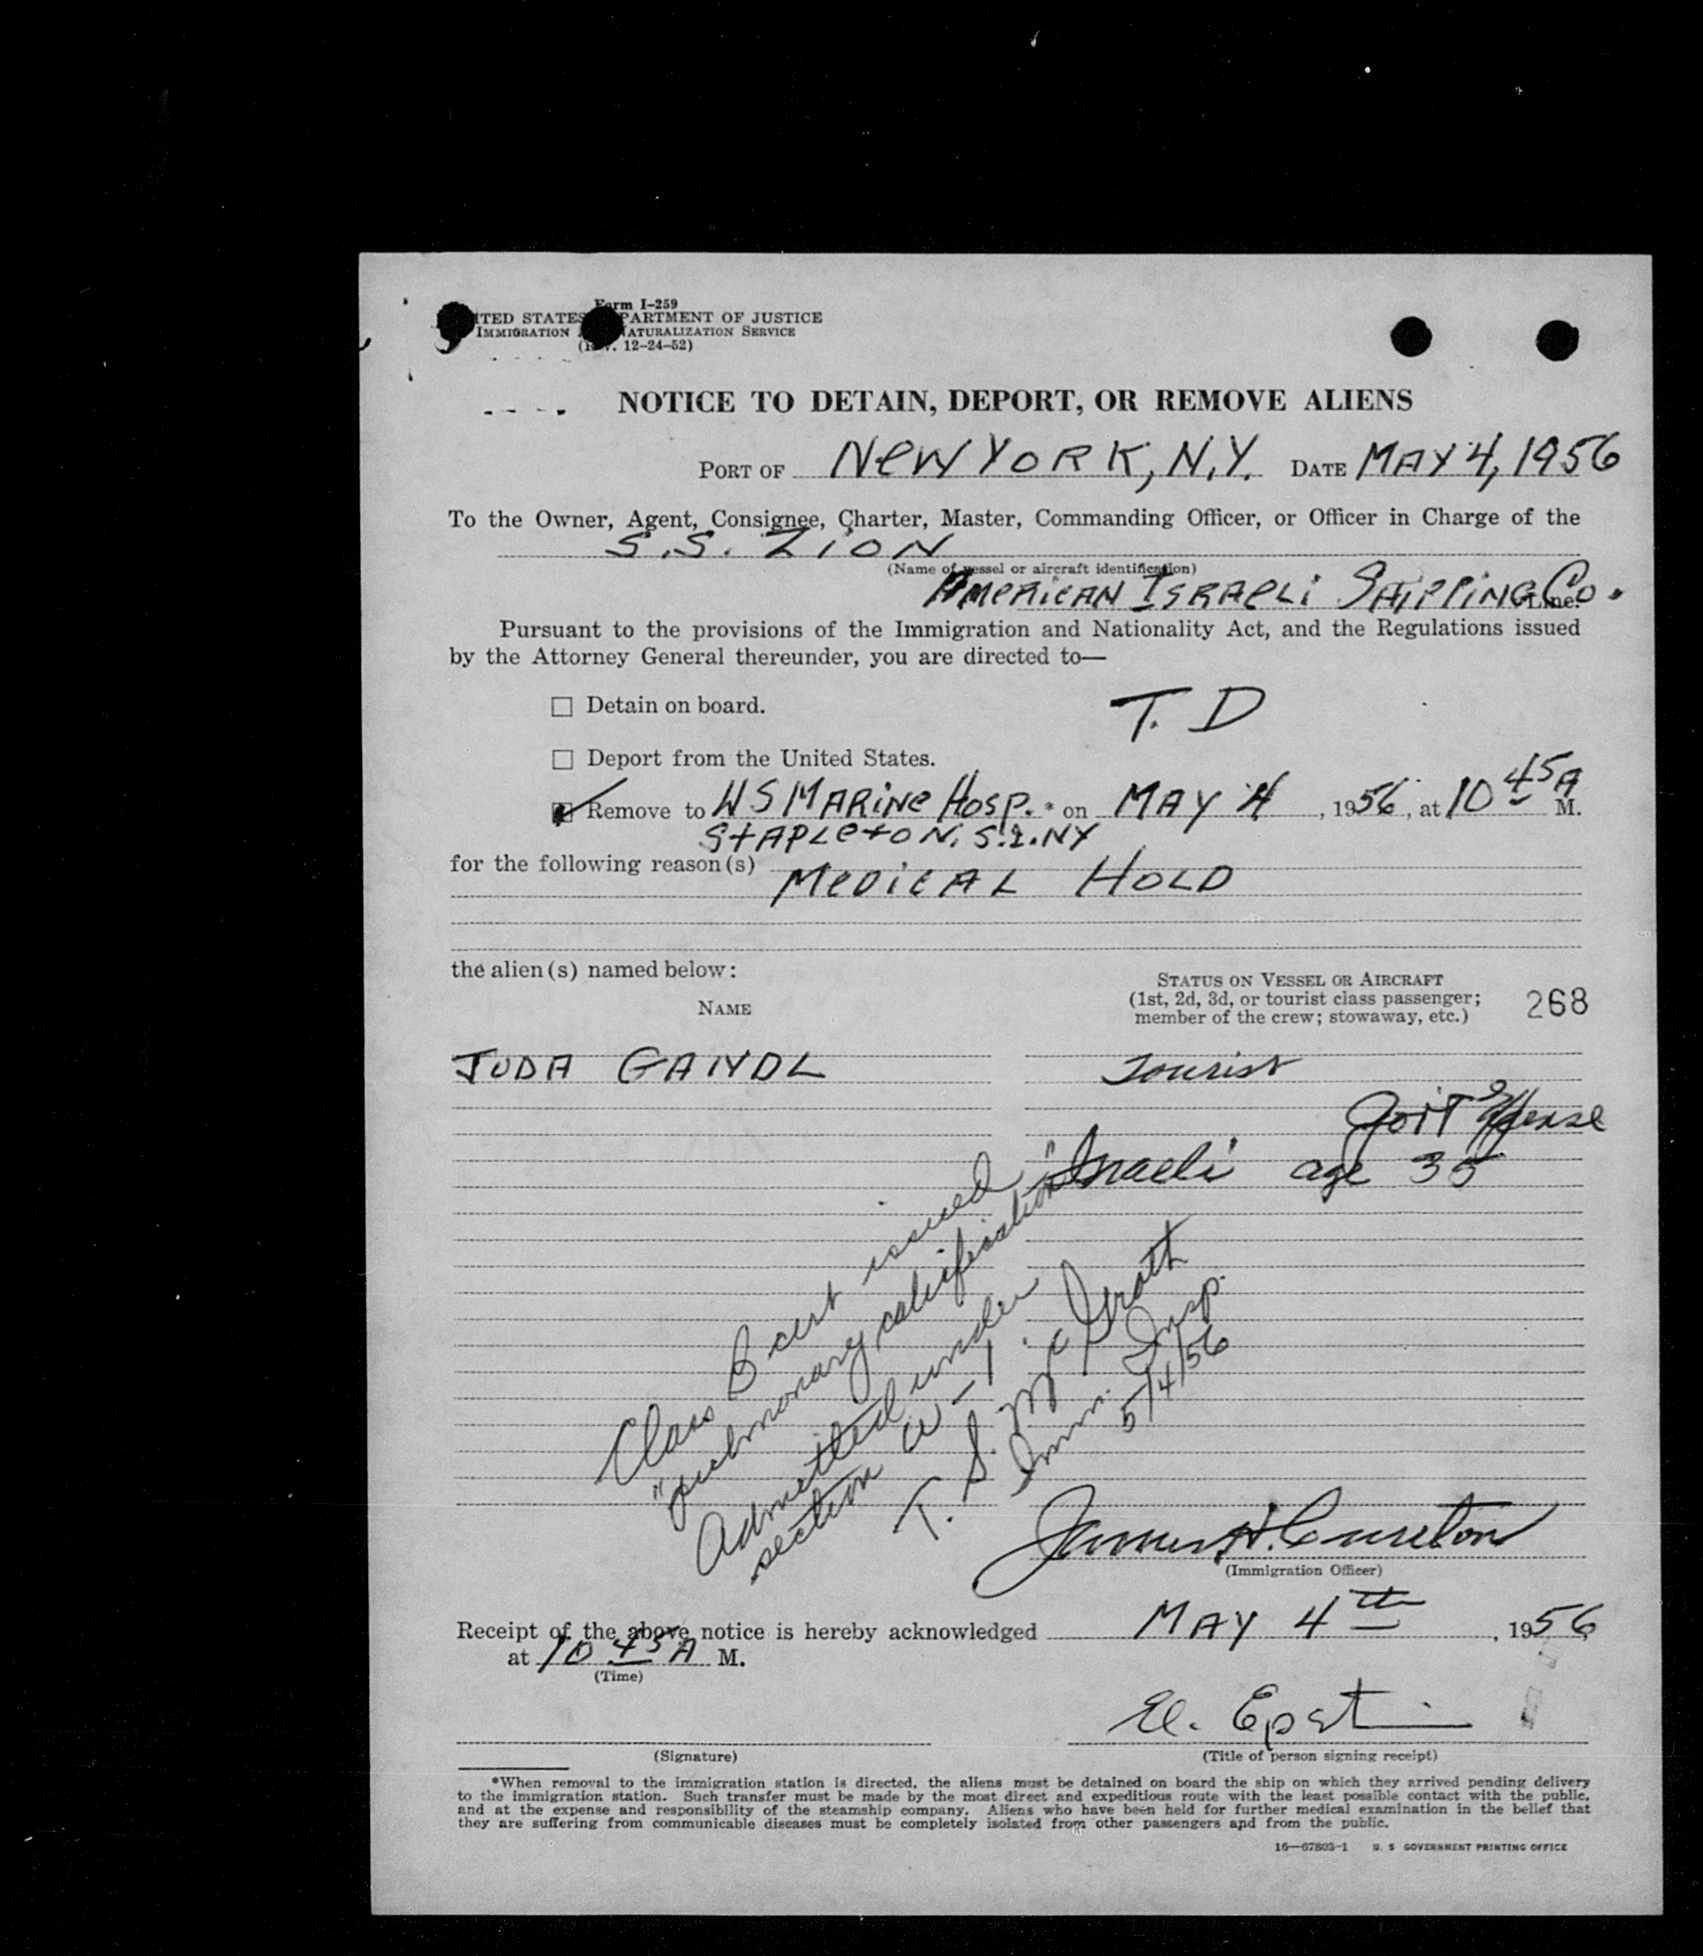 Form I-259
UNITED STATES DEPARTMENT OF JUSTICE
IMMIGRATION AND NATURALIZATION SERVICE
(Rev. 12-24-52)
NOTICE TO DETAIN, DEPORT, OR REMOVE ALIENS
PORT OF NEW YORK, N.Y. DATE MAY 4, 1956
To the Owner, Agent, Consignee, Charter, Master, Commanding Officer, or Officer in Charge of the
S.S. ZION
(Name of vessel or aircraft identification)
AMERICAN ISRAELI SHIPPING CO. Line.
Pursuant to the provisions of the Immigration and Nationality Act, and the Regulations issued
by the Attorney General thereunder, you are directed to—
☐ Detain on board.
T. D
☐ Deport from the United States.
Remove to US MARINE HOSP. * on MAY 4, 1956, at 10 45 A M.
STAPLETON, S.I. NY
for the following reason(s)
MEDICAL HOLD
the alien(s) named below:
STATUS ON VESSEL OR AIRCRAFT
(1st, 2d, 3d, or tourist class passenger;
member of the crew; stowaway, etc.)
268
NAME
JUDA GANDL Tourist
Gov't Expense
Israeli age 35
Class B cert issued
"pulmonary calcification"
Admitted under
section a-1.
T. S. McGrath
Imm. Insp.
5/4/56
James H. Cureton
(Immigration Officer)
Receipt of the above notice is hereby acknowledged MAY 4th, 1956
at 10 45 A M.
(Time)
El. Epstein
(Signature) (Title of person signing receipt)
*When removal to the immigration station is directed, the aliens must be detained on board the ship on which they arrived pending delivery
to the immigration station. Such transfer must be made by the most direct and expeditious route with the least possible contact with the public,
and at the expense and responsibility of the steamship company. Aliens who have been held for further medical examination in the belief that
they are suffering from communicable diseases must be completely isolated from other passengers and from the public.
16—67803-1 U. S. GOVERNMENT PRINTING OFFICE